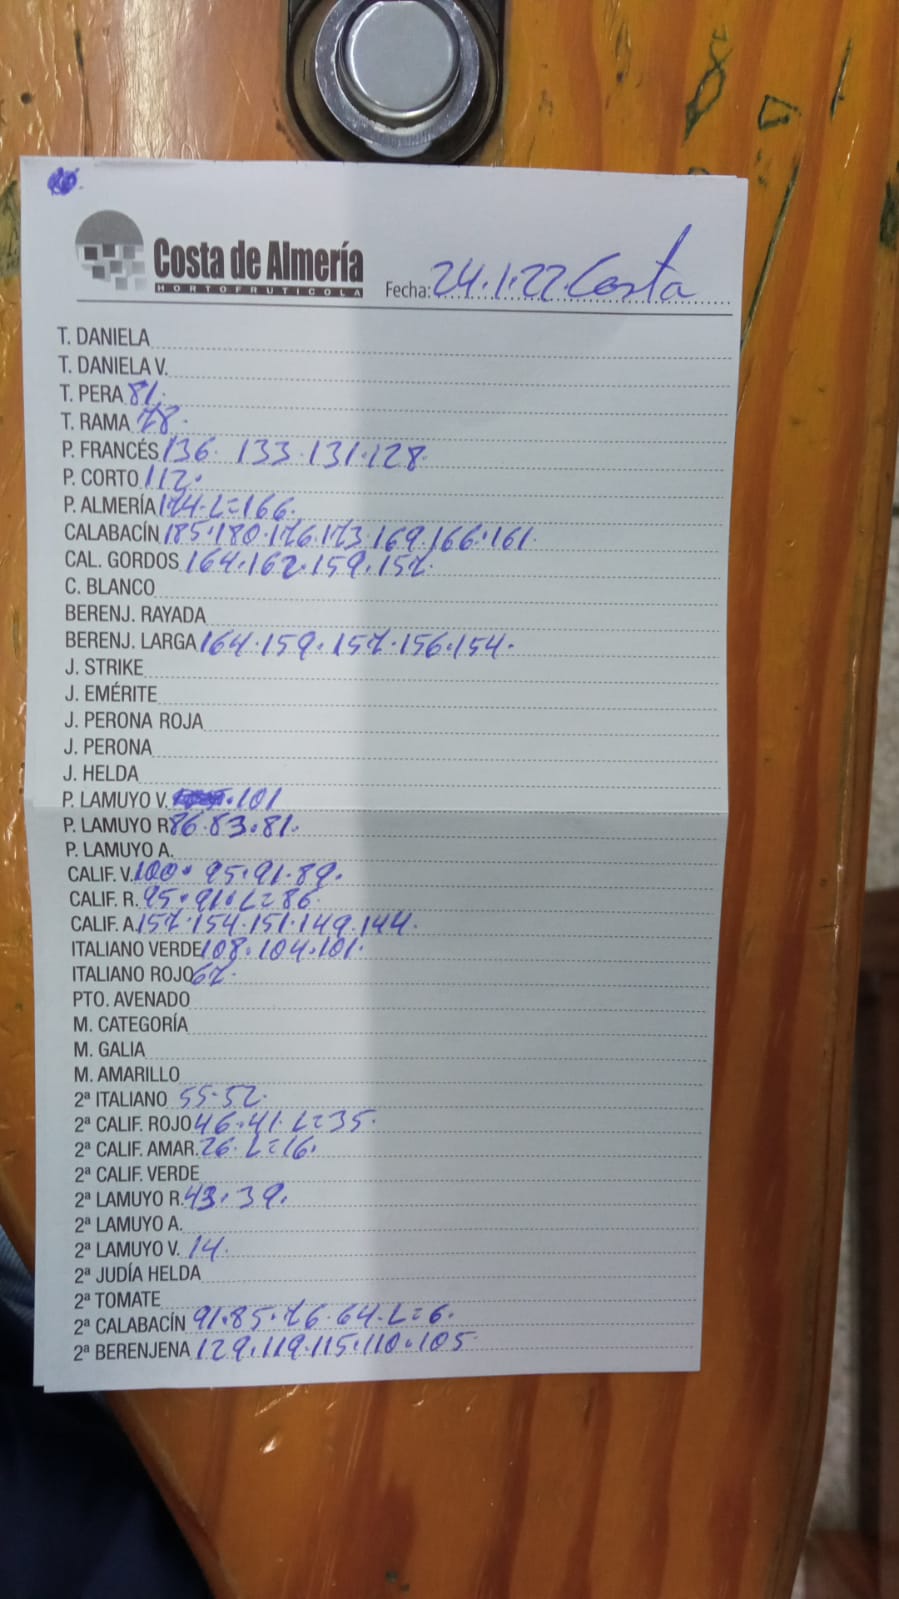 Costa de Almería
HORTOFRUTICOLA
Fecha: 24.1.22. Costa
T. DANIELA
T. DANIELA V.
T. PERA 81.
T. RAMA 78.
P. FRANCÉS 136. 133.131.128
P. CORTO 112.
P. ALMERÍA 174.L=166.
CALABACÍN 185.180.176.173.169.166.161
CAL. GORDOS 164.162.159.157.
C. BLANCO
BERENJ. RAYADA
BERENJ. LARGA 164.159.157.156.154.
J. STRIKE
J. EMÉRITE
J. PERONA ROJA
J. PERONA
J. HELDA
P. LAMUYO V. .101
P. LAMUYO R 86.83.81.
P. LAMUYO A.
CALIF. V. 100. 95.91.89.
CALIF. R. 95.91.L=86
CALIF. A. 157.154.151.149.144.
ITALIANO VERDE 108.104.101.
ITALIANO ROJO 67.
PTO. AVENADO
M. CATEGORÍA
M. GALIA
M. AMARILLO
2ª ITALIANO 55.52.
2ª CALIF. ROJO 46.41.L=35.
2ª CALIF. AMAR. 26.L=16.
2ª CALIF. VERDE
2ª LAMUYO R. 43.39.
2ª LAMUYO A.
2ª LAMUYO V. 14.
2ª JUDÍA HELDA
2ª TOMATE
2ª CALABACÍN 91.85.76.64.L=6.
2ª BERENJENA 129.119.115.110.105